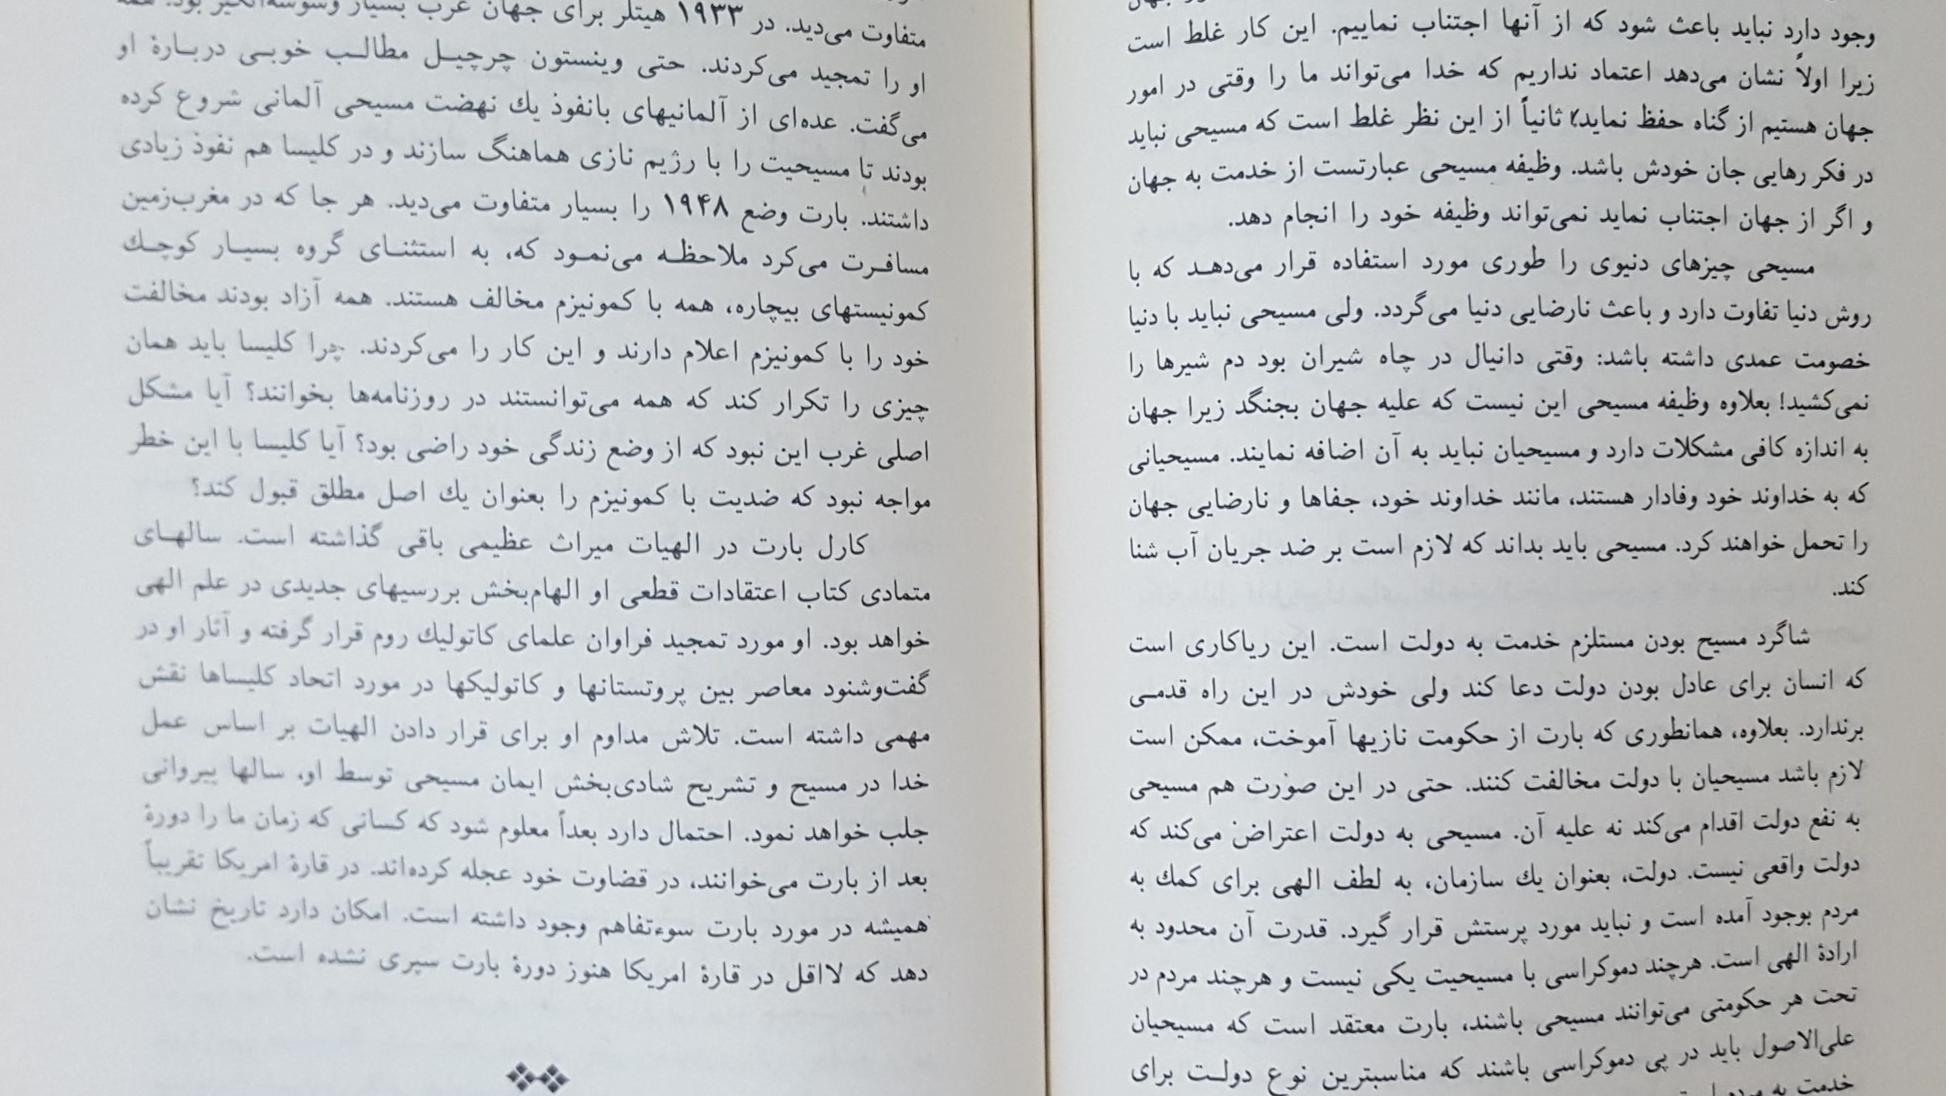 وجود دارد نباید باعث شود که از آنها اجتناب نماییم. این کار غلط است
زیرا اولاً نشان می‌دهد اعتماد نداریم که خدا می‌تواند ما را وقتی در امور
جهان هستیم از گناه حفظ نماید؛ ثانیاً از این نظر غلط است که مسیحی نباید
در فکر رهایی جان خودش باشد. وظیفه مسیحی عبارتست از خدمت به جهان
و اگر از جهان اجتناب نماید نمی‌تواند وظیفه خود را انجام دهد.
مسیحی چیزهای دنیوی را طوری مورد استفاده قرار می‌دهد که با
روش دنیا تفاوت دارد و باعث نارضایی دنیا می‌گردد. ولی مسیحی نباید با دنیا
خصومت عمدی داشته باشد: وقتی دانیال در چاه شیران بود دم شیرها را
نمی‌کشید! بعلاوه وظیفه مسیحی این نیست که علیه جهان بجنگد زیرا جهان
به اندازه کافی مشکلات دارد و مسیحیان نباید به آن اضافه نمایند. مسیحیانی
که به خداوند خود وفادار هستند، مانند خداوند خود، جفاها و نارضایی جهان
را تحمل خواهند کرد. مسیحی باید بداند که لازم است بر ضد جریان آب شنا
کند.
شاگرد مسیح بودن مستلزم خدمت به دولت است. این ریاکاری است
که انسان برای عادل بودن دولت دعا کند ولی خودش در این راه قدمی
برندارد. بعلاوه، همانطوری که بارت از حکومت نازیها آموخت، ممکن است
لازم باشد مسیحیان با دولت مخالفت کنند. حتی در این صورت هم مسیحی
به نفع دولت اقدام می‌کند نه علیه آن. مسیحی به دولت اعتراض می‌کند که
دولت واقعی نیست. دولت، بعنوان یك سازمان، به لطف الهی برای کمك به
مردم بوجود آمده است و نباید مورد پرستش قرار گیرد. قدرت آن محدود به
ارادهٔ الهی است. هرچند دموکراسی با مسیحیت یکی نیست و هرچند مردم در
تحت هر حکومتی می‌توانند مسیحی باشند، بارت معتقد است که مسیحیان
علی‌الاصول باید در پی دموکراسی باشند که مناسبترین نوع دولت برای
خدمت به مردم
متفاوت می‌دید. در ۱۹۳۳ هیتلر برای جهان غرب بسیار وسوسه‌انگیز بود. همه
او را تمجید می‌کردند. حتی وینستون چرچیل مطالب خوبی دربارهٔ او
می‌گفت. عده‌ای از آلمانیهای بانفوذ یك نهضت مسیحی آلمانی شروع کرده
بودند تا مسیحیت را با رژیم نازی هماهنگ سازند و در کلیسا هم نفوذ زیادی
داشتند. بارت وضع ۱۹۴۸ را بسیار متفاوت می‌دید. هر جا که در مغرب‌زمین
مسافرت می‌کرد ملاحظه می‌نمود که، به استثنای گروه بسیار کوچك
کمونیستهای بیچاره، همه با کمونیزم مخالف هستند. همه آزاد بودند مخالفت
خود را با کمونیزم اعلام دارند و این کار را می‌کردند. چرا کلیسا باید همان
چیزی را تکرار کند که همه می‌توانستند در روزنامه‌ها بخوانند؟ آیا مشکل
اصلی غرب این نبود که از وضع زندگی خود راضی بود؟ آیا کلیسا با این خطر
مواجه نبود که ضدیت با کمونیزم را بعنوان یك اصل مطلق قبول کند؟
کارل بارت در الهیات میراث عظیمی باقی گذاشته است. سالهای
متمادی کتاب اعتقادات قطعی او الهام‌بخش بررسیهای جدیدی در علم الهی
خواهد بود. او مورد تمجید فراوان علمای کاتولیك روم قرار گرفته و آثار او در
گفت‌وشنود معاصر بین پروتستانها و کاتولیکها در مورد اتحاد کلیساها نقش
مهمی داشته است. تلاش مداوم او برای قرار دادن الهیات بر اساس عمل
خدا در مسیح و تشریح شادی‌بخش ایمان مسیحی توسط او، سالها پیروانی
جلب خواهد نمود. احتمال دارد بعداً معلوم شود که کسانی که زمان ما را دورهٔ
بعد از بارت می‌خوانند، در قضاوت خود عجله کرده‌اند. در قارهٔ امریکا تقریباً
همیشه در مورد بارت سوءتفاهم وجود داشته است. امکان دارد تاریخ نشان
دهد که لااقل در قارهٔ امریکا هنوز دورهٔ بارت سپری نشده است.